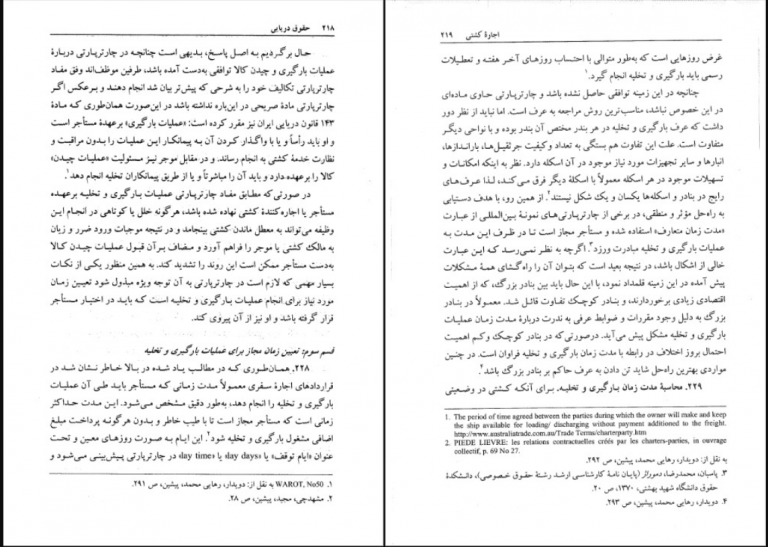 ۲۱۸ حقوق دریایی
حال برگردیم به اصل پاسخ، بدیهی است چنانچه در چارترپارتی دربارۀ
عملیات بارگیری و چیدن کالا توافقی به‌دست آمده باشد، طرفین موظف‌اند وفق مفاد
چارترپارتی تکالیف خود را به شرحی که پیش‌تر بیان شد انجام دهند و برعکس اگر
چارترپارتی مادۀ صریحی در این‌باره نداشته باشد در این‌صورت همان‌طوری که مـادۀ
۱۴۳ قانون دریایی ایران نیز مقرر کرده است: «عملیات بارگیری» برعهدۀ مستأجر است
و او باید رأساً و یا با واگذار کردن آن به پیمانکار این عملیات را بدون مراقبت و
نظارت خدمۀ کشتی به انجام رساند. و در مقابل موجر نیز مسئولیت «عملیات چیدن»
کالا را برعهده دارد و باید آن را مباشرتاً و یا از طریق پیمانکاران تخلیه انجام دهد.۱
در صورتی‌که مطابق مفاد چارترپارتی عملیات بارگیری و تخلیه برعهده
مستأجر یا اجاره‌کنندۀ کشتی نهاده شده باشد، هرگونه خلل یا کوتاهی در انجام این
وظیفه می‌تواند به معطل ماندن کشتی بینجامد و در نتیجه موجبات ورود ضرر و زیان
به مالک کشتی یا موجر را فراهم آورد و مضاف بر آن قبول عملیات چیدن کالا
به‌دست مستأجر ممکن است این روند را تشدید کند. به همین منظور یکی از نکات
بسیار مهمی که لازم است در چارترپارتی به آن توجه ویژه مبذول شود تعیین زمان
مورد نیاز برای انجام عملیات بارگیری و تخلیه است که باید در اختیار مستأجر
قرار گرفته باشد و او نیز از آن پیروی کند.
قسم سوم: تعیین زمان مجاز برای عملیات بارگیری و تخلیه
۲۲۸. همان‌طوری که در مطالب یاد شده در بالا خاطر نشان شد در
قراردادهای اجارۀ سفری معمولاً مدت زمانی که مستأجر باید طی آن عملیات
بارگیری و تخلیه را انجام دهد، به‌طور دقیق مشخص می‌شود. این مدت حداکثر
زمانی است که مستأجر مجاز است تا با طیب خاطر و بدون هرگونه پرداخت مبلغ
اضافی مشغول بارگیری و تخلیه شود.۲ این ایام به صورت روزهای معین و تحت
عنوان «ایام توقف» یا «lay days» یا «lay time» در چارترپارتی پیش‌بینی می‌شود و
۱. WAROT, No50 به نقل از: دویدار، رهایی محمد، پیشین، ص ۲۹۱.
۲. مشهدچی، مجید، پیشین، ص ۲۸.
اجارۀ کشتی ۲۱۹
غرض روزهایی است که به‌طور متوالی با احتساب روزهای آخر هفته و تعطیلات
رسمی باید بارگیری و تخلیه انجام گیرد.۱
چنانچه در این زمینه توافقی حاصل نشده باشد و چارترپارتی حاوی ماده‌ای
در این خصوص نباشد، مناسب‌ترین روش مراجعه به عرف است. اما نباید از نظر دور
داشت که عرف بارگیری و تخلیه در هر بندر مختص آن بندر بوده و با نواحی دیگر
متفاوت است. علت این تفاوت هم بستگی به تعداد و کیفیت جرثقیل‌ها، باراندازها،
انبارها و سایر تجهیزات مورد نیاز موجود در آن اسکله دارد. نظر به اینکه امکانات و
تسهیلات موجود در هر اسکله معمولاً با اسکلۀ دیگر فرق می‌کند، لذا عرف‌های
رایج در بنادر و اسکله‌ها یکسان و یک شکل نیستند.۲ از همین رو، با هدف دستیابی
به راه‌حل مؤثر و منطقی، در برخی از چارترپارتی‌های نمونۀ بین‌المللی از عبارت
«مدت زمان متعارف» استفاده شده و مستأجر مجاز است تا در ظرف این مدت به
عملیات بارگیری و تخلیه مبادرت ورزد.۳ اگرچه به نظر نمی‌رسد که این عبارت
خالی از اشکال باشد، در نتیجه بعید است که بتوان آن را راه‌گشای همۀ مشکلات
پیش آمده در این زمینه قلمداد نمود، با این حال باید بین بنادر بزرگ، که از اهمیت
اقتصادی زیادی برخوردارند، و بنادر کوچک تفاوت قائل شد. معمولاً در بنادر
بزرگ به دلیل وجود مقررات و ضوابط عرفی به ندرت دربارۀ مدت زمان عملیات
بارگیری و تخلیه مشکل پیش می‌آید. درصورتی‌که در بنادر کوچک و کم اهمیت
احتمال بروز اختلاف در رابطه با مدت زمان بارگیری و تخلیه فراوان است. در چنین
مواردی بهترین راه‌حل شاید تن دادن به عرف حاکم بر بنادر بزرگ باشد.۴
۲۲۹. محاسبۀ مدت زمان بارگیری و تخلیه. برای آنکه کشتی در وضعیتی
1. The period of time agreed between the parties during which the owner will make and keep
the ship available for loading/ discharging without payment additioned to the freight.
http://www.australiatrade.com.au/Trade Terms/charterparty.htm
2. PIEDE LIEVRE: les relations contractuelles créés par les charters-parties, in ouvrage
collectif, p. 69 No 27.
به نقل از: دویدار، رهایی محمد، پیشین، ص ۲۹۲.
۳. پاسبان، محمدرضا، دموراژ (پایان‌نامۀ کارشناسی ارشد رشتۀ حقوق خصوصی)، دانشکدۀ
حقوق دانشگاه شهید بهشتی، ۱۳۷۰، ص ۲۰.
۴. دویدار، رهایی محمد، پیشین، ص ۲۹۳.